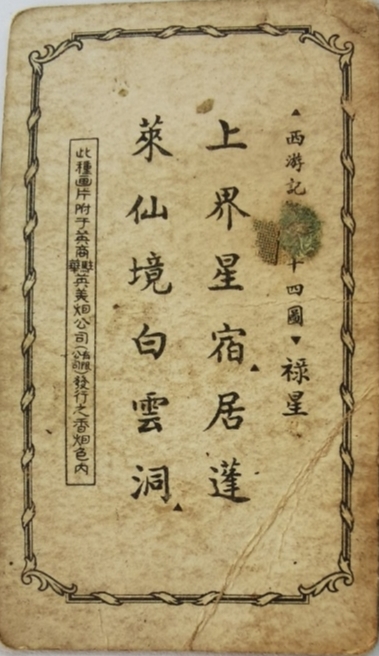 ▲西游記十四圖▼祿星
上界星宿居蓬
萊仙境白雲洞
此種圖片附于英商駐華英美烟公司（有限公司）發行之香烟包內